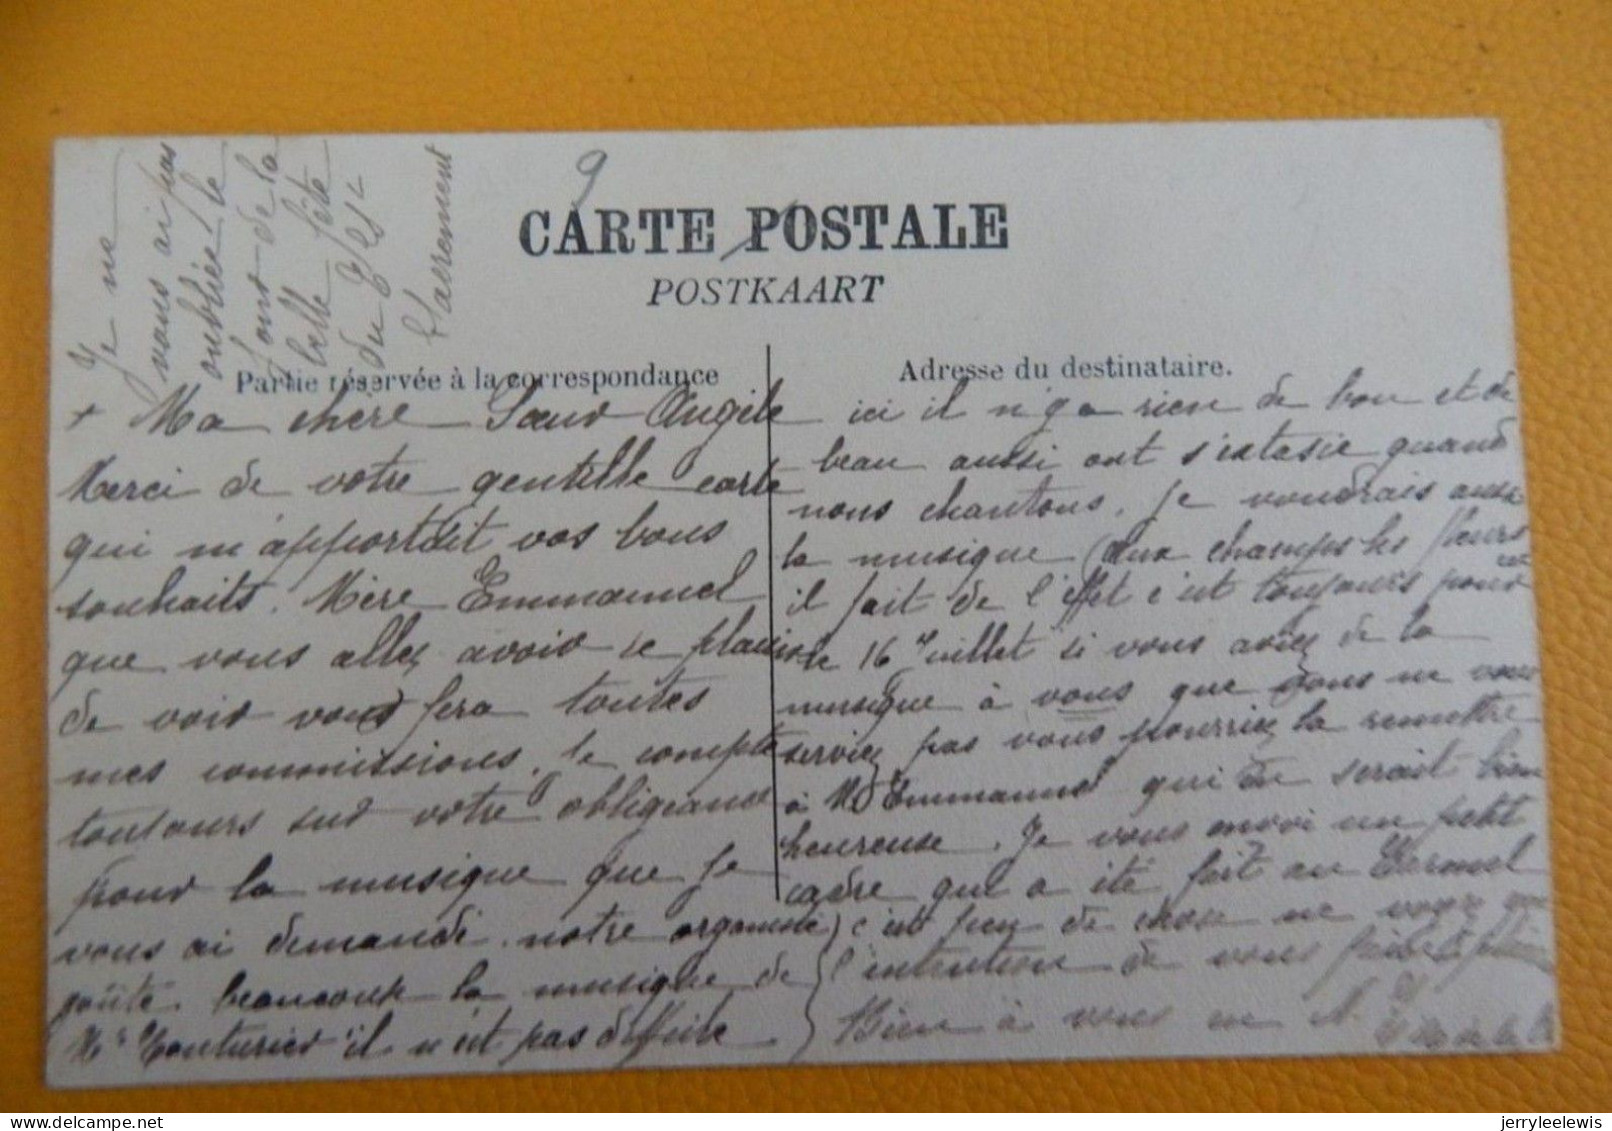 Je ne
vous ai pas
oubliée le
jour de la
belle fête
du T. St
Sacrement
9
CARTE POSTALE
POSTKAART
Partie réservée à la correspondance
Adresse du destinataire.
+ Ma chère Sœur Angèle
Merci de votre gentille carte
qui m'apportait vos bons
souhaits. Mère Emmanuel
que vous allez avoir le plaisir
de voir vous fera toutes
mes commissions. Je compte
toujours sur votre obligeance
pour la musique que je
vous ai demandé. notre organiste
goûte beaucoup la musique de
Mr Couturier il n'est pas difficile
ici il n'y a rien de bon et de
beau aussi ont s'extasie quand
nous chantons. Je voudrais aussi
la musique (Aux champs les fleurs
il fait de l'effet c'est toujours pour
le 16 Juillet si vous aviez de la
musique à vous que vous ne vous
serviez pas vous pourriez la remettre
à M Emmanuel qui en serait bien
heureuse. Je vous envoi un petit
cadre qui a été fait au Carmel
c'est peu de chose ne voyez que
l'intention de vous faire plaisir
Bien à vous en N. S.
jerryleelewis